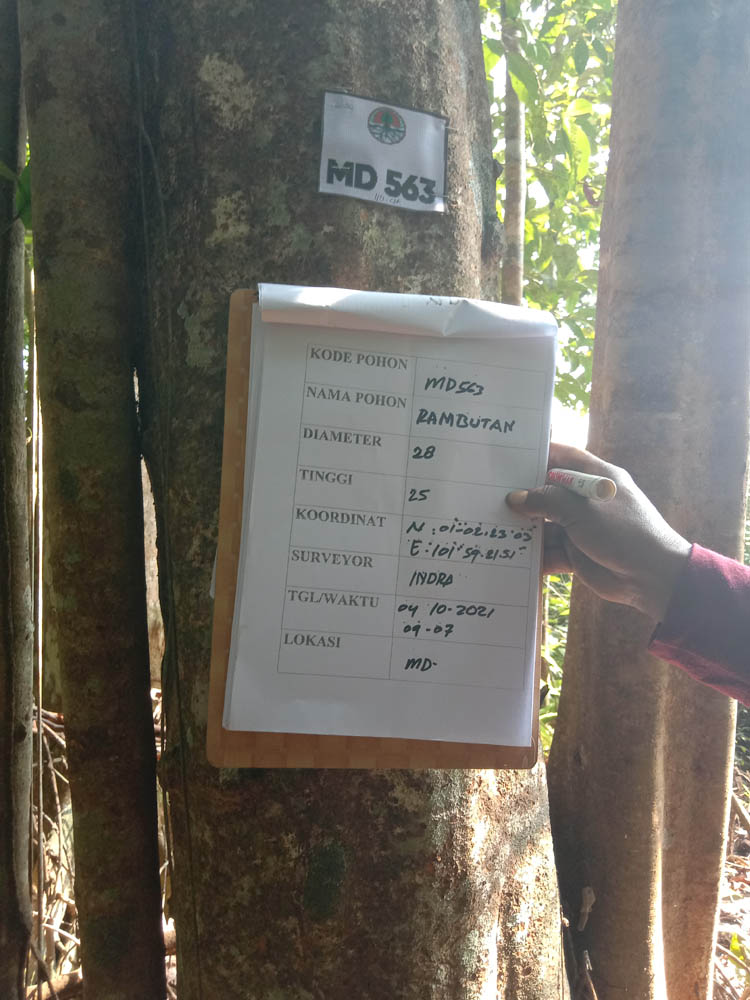 MD 563
KODE POHON MD563
NAMA POHON RAMBUTAN
DIAMETER 28
TINGGI 25
KOORDINAT N : 01-02.23.03
E : 101-59.21.51
SURVEYOR INDRA
TGL/WAKTU 04 10-2021
09-07
LOKASI MD-